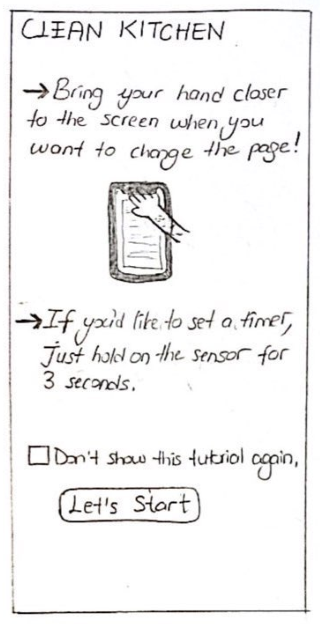 CLEAN KITCHEN
→Bring your hand closer
to the screen when you
want to change the page!
→If you'd like to set a timer,
Just hold on the sensor for
3 seconds.
Don't show this tutorial again,
Let's Start